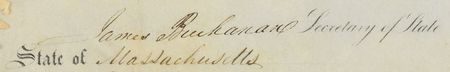 James Buchanan Secretary of State
State of Massachusetts